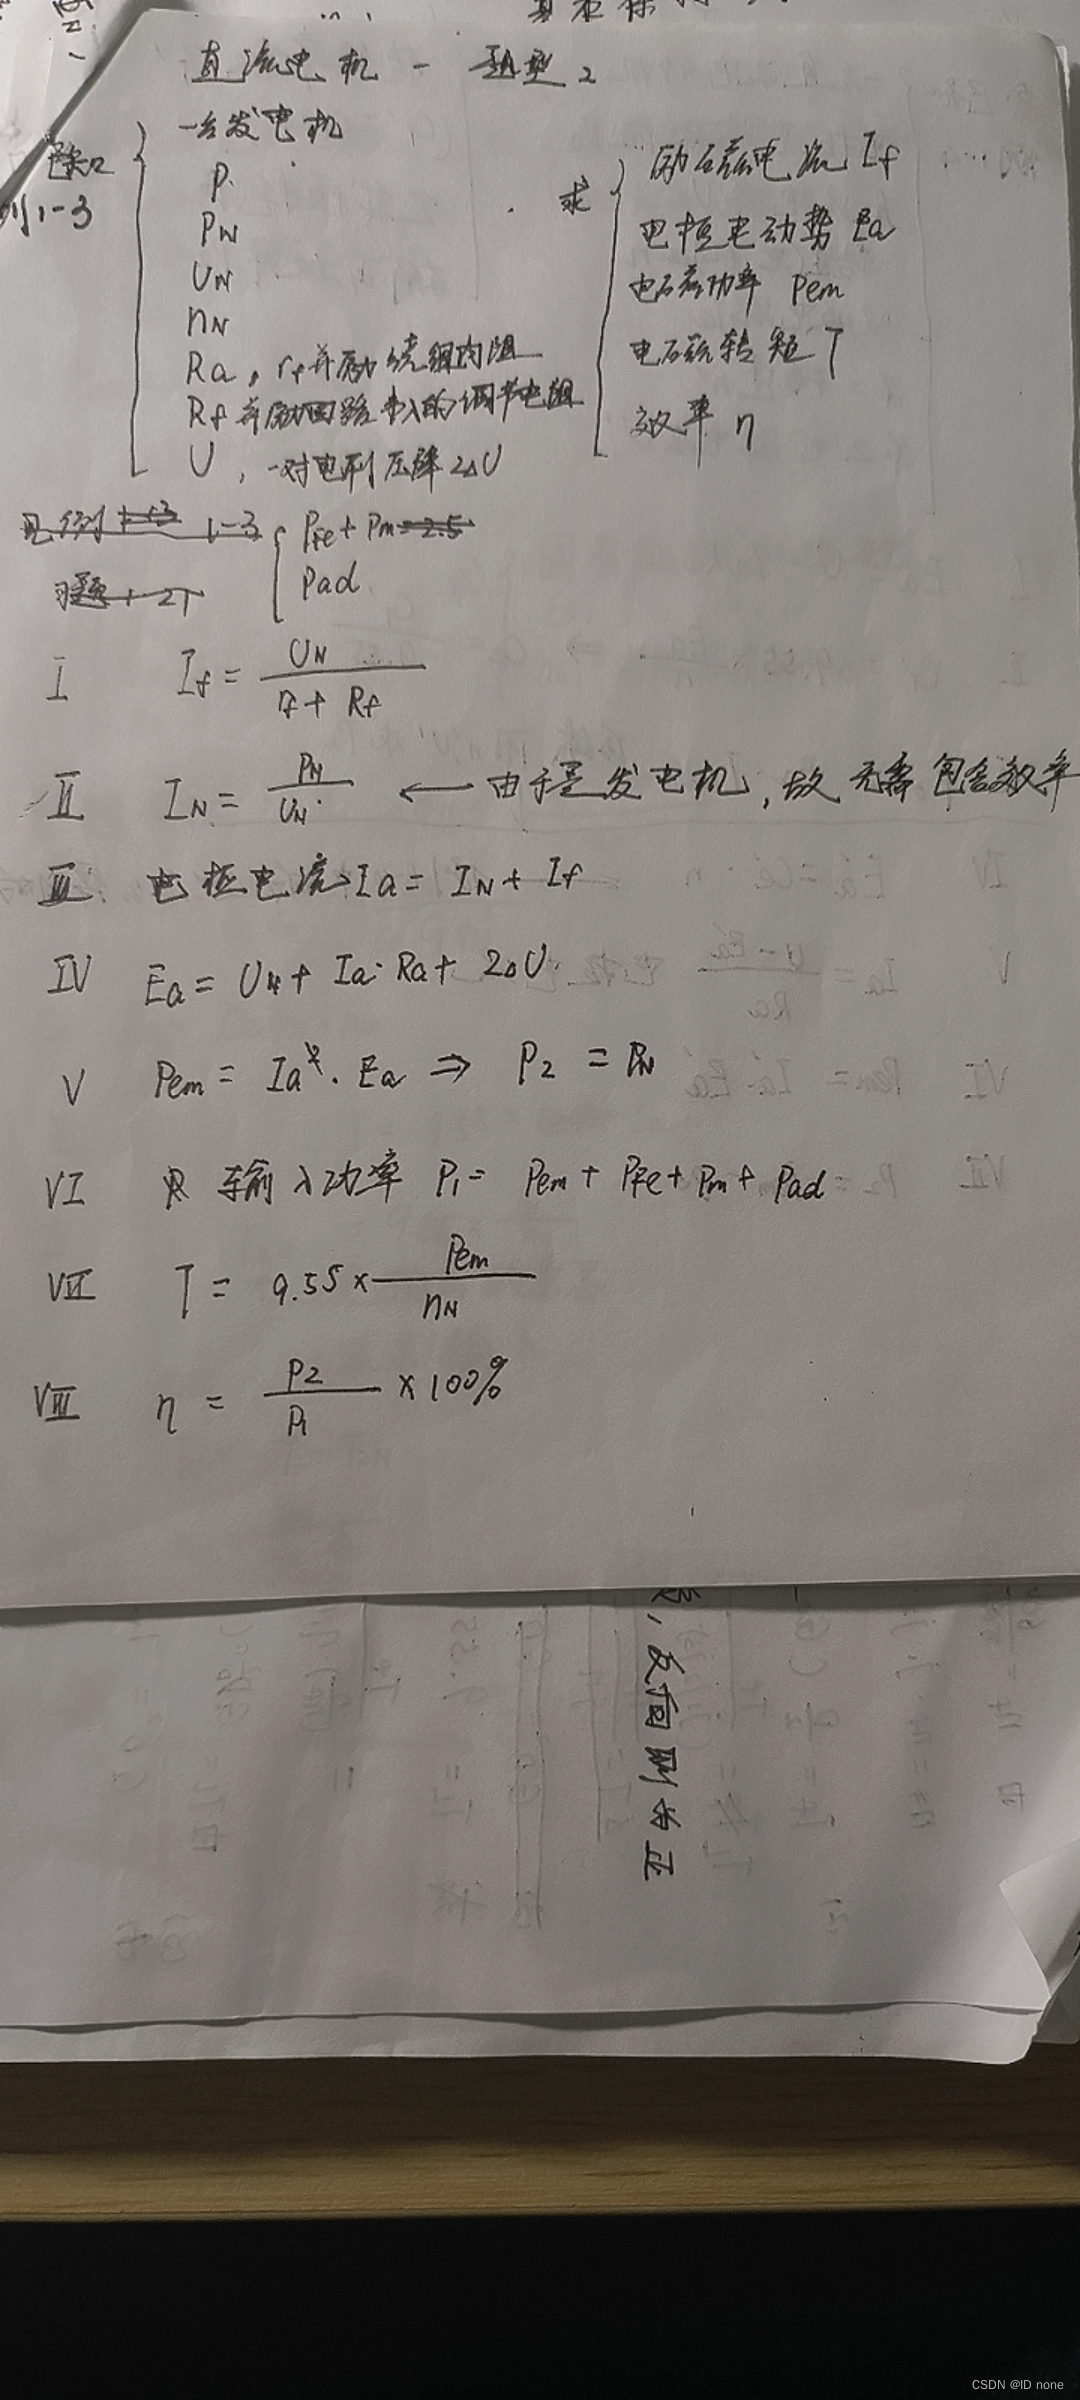 直流电机 - 题型2
一台发电机
例1-3
P
PN
UN
nN
Ra, rf并励绕组内阻
Rf并励回路串入的调节电阻
U, 一对电刷压降2ΔU
求
励磁电流 If
电枢电动势 Ea
电磁功率 Pem
电磁转矩 T
效率 η
见例 1-3
PFe + Pm = 2.5
习题 1-21
Pad
I If = UN / (rf + Rf)
II IN = PN / UN ← 由于是发电机, 故无需包含效率
III 电枢电流 Ia = IN + If
IV Ea = UN + Ia·Ra + 2ΔU
V Pem = Ia · Ea ⇒ P2 = PN
VI 输入功率 P1 = Pem + PFe + Pm + Pad
VII T = 9.55 × Pem / nN
VIII η = P2 / P1 × 100%
反向则为正
CSDN @ID none